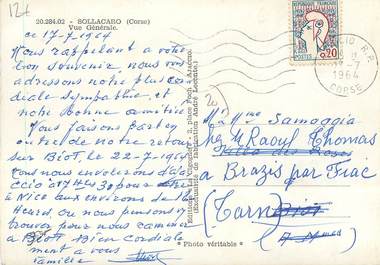 124
20.284.02 - SOLLACARO (Corse)
Vue Générale.
ce 17-7-1964
Nous rappelant a votre
bon souvenir, nous vous
adressons notre plus cor
diale Sympathie, et
notre bonne amitiée.
Nous faisons part en
outre de notre retour
sur Biot, le 22-7-1964
Nous nous envolerons d'aja
ccio a 17 H
a Nice aux environs de
Heures, ou nous pensons
trouver pour nous camener
a Biot. Bien Cordiale
ment a vous
famille
Editions "La Cigogne", 2, place Foch - Ajaccio
(Exclusivité de Fabrication André Leconte)
* Photo véritable *
POSTES
0,20
R.P.
-7
1964
CORSE
M. Mme Samoggia
chez Mr Raoul Thomas
Villa des Roses
a Brazis par Fiac
(Tarn)
Biot
A Mmes